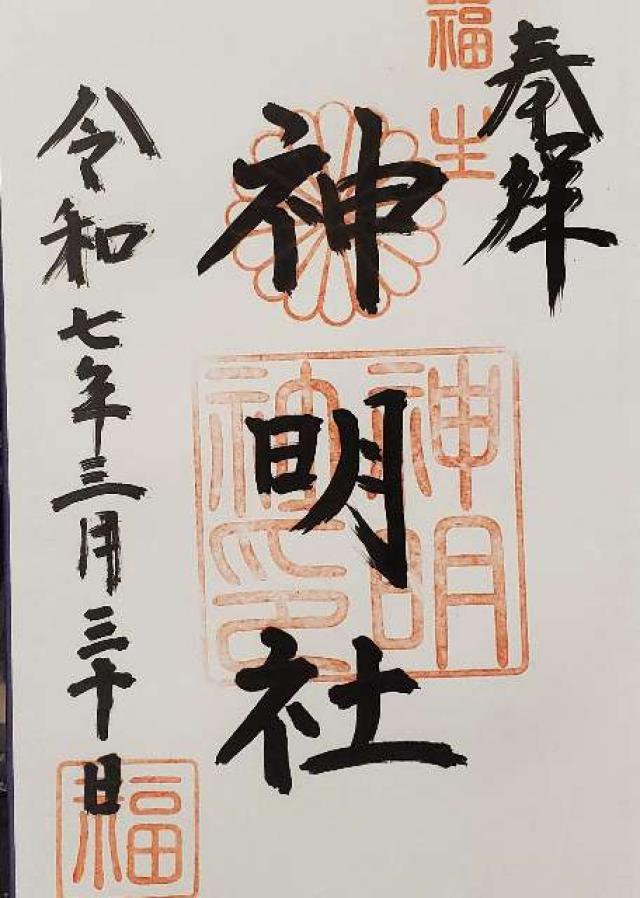 奉拝
福生
神明社
神明社印
令和七年三月三十日
福